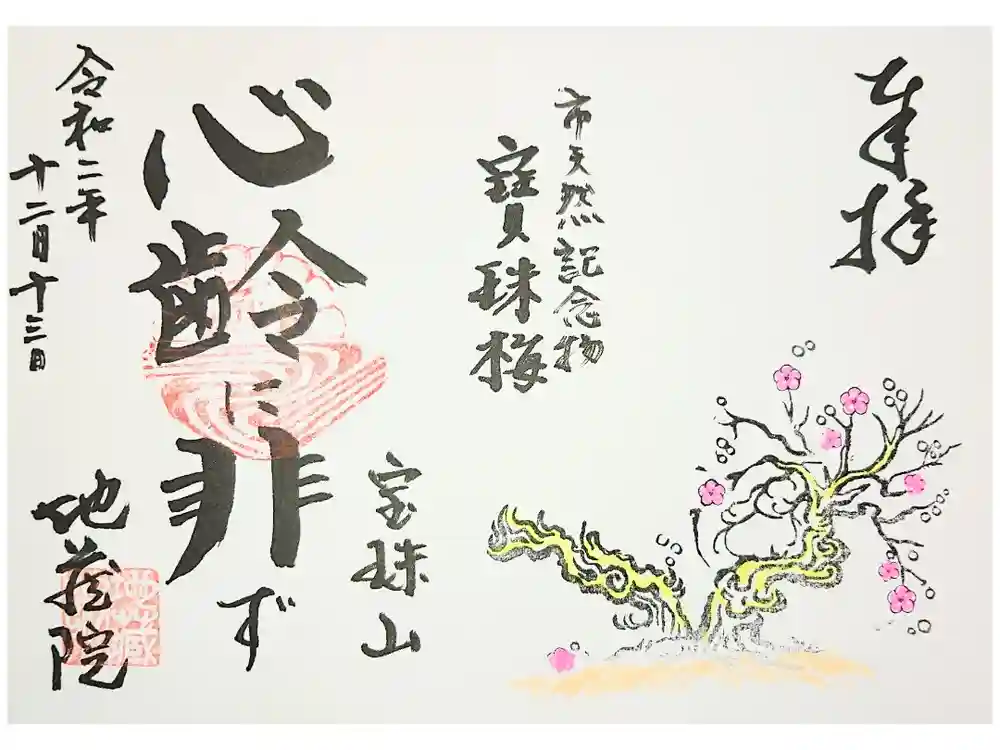 奉拝
市天然記念物
寳珠梅
宝珠山
心齢に非ず
令和二年
十二月十三日
地蔵院